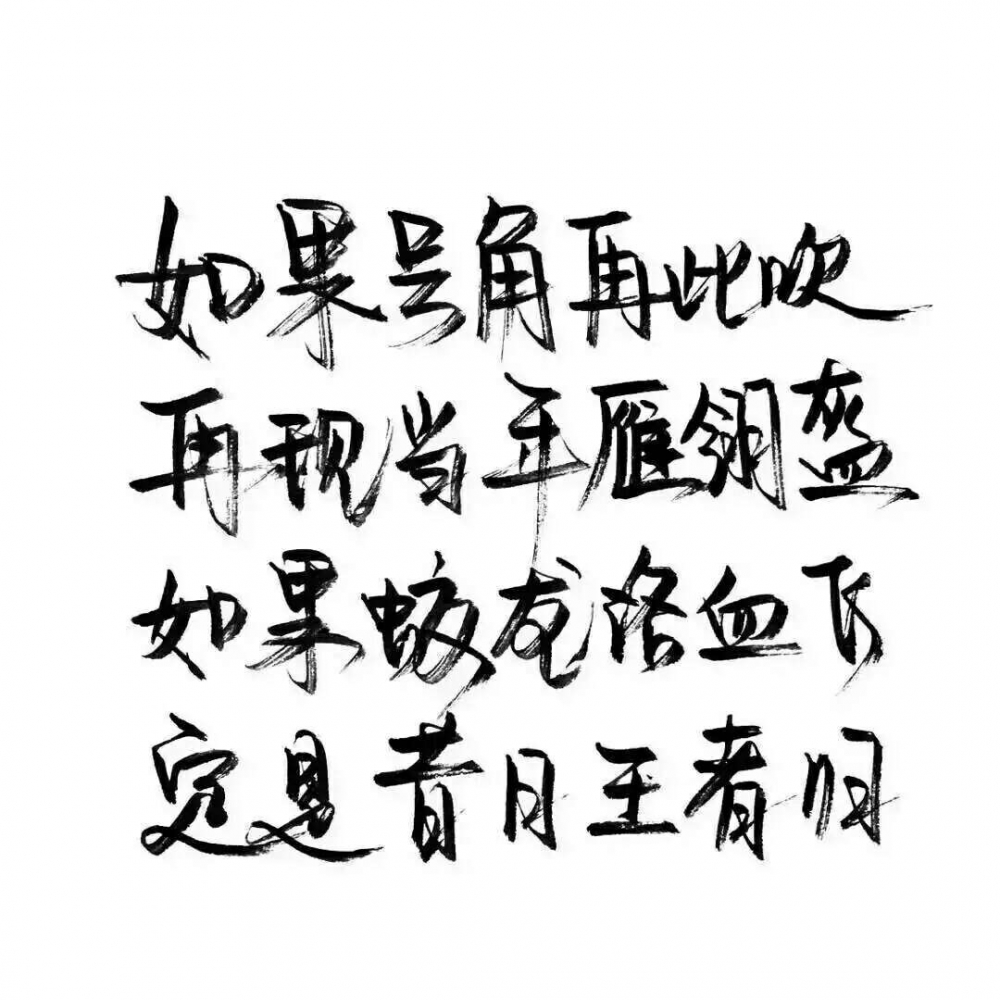 如果号角再此吹
再现当年雁翎盔
如果蛟龙浴血飞
定是昔日王者归